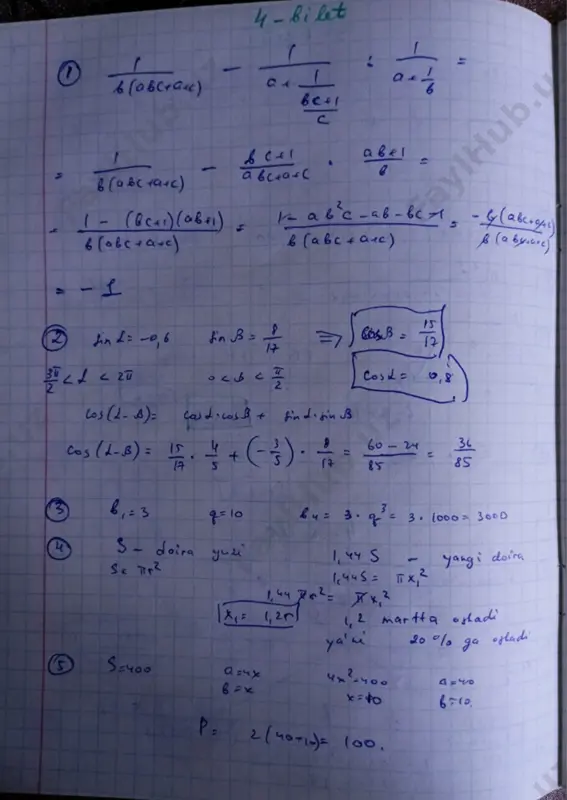 4-bilet
① 1/(b(abc+a+c)) − 1/(a+1/((bc+1)/c)) : 1/(a+1/b) =
= 1/(b(abc+a+c)) − (bc+1)/(abc+a+c) · (ab+1)/b =
= (1-(bc+1)(ab+1))/(b(abc+a+c)) = (1-ab²c-ab-bc-1)/(b(abc+a+c)) = -b(abc+a+c)/(b(abc+a+c))
= -1
② sin α = -0,6 sin β = 8/17 ⇒ cos β = 15/17
3π/2 < α < 2π 0 < β < π/2 cos α = 0,8
cos(α-β) = cosα·cosβ + sinα·sinβ
cos(α-β) = 15/17 · 4/5 + (-3/5) · 8/17 = (60-24)/85 = 36/85
③ b₁=3 q=10 b₄ = 3·q³ = 3·1000 = 3000
④ S - doira yuzi 1,44 S - yangi doira
S = πr² 1,44S = πx₁²
1,44 πr² = πx₁²
x₁ = 1,2r 1,2 martta oshadi
ya'ni 20% ga oshadi
⑤ S=400 a=4x 4x²=400 a=40
b=x x=10 b=10
P = 2(40+10) = 100.